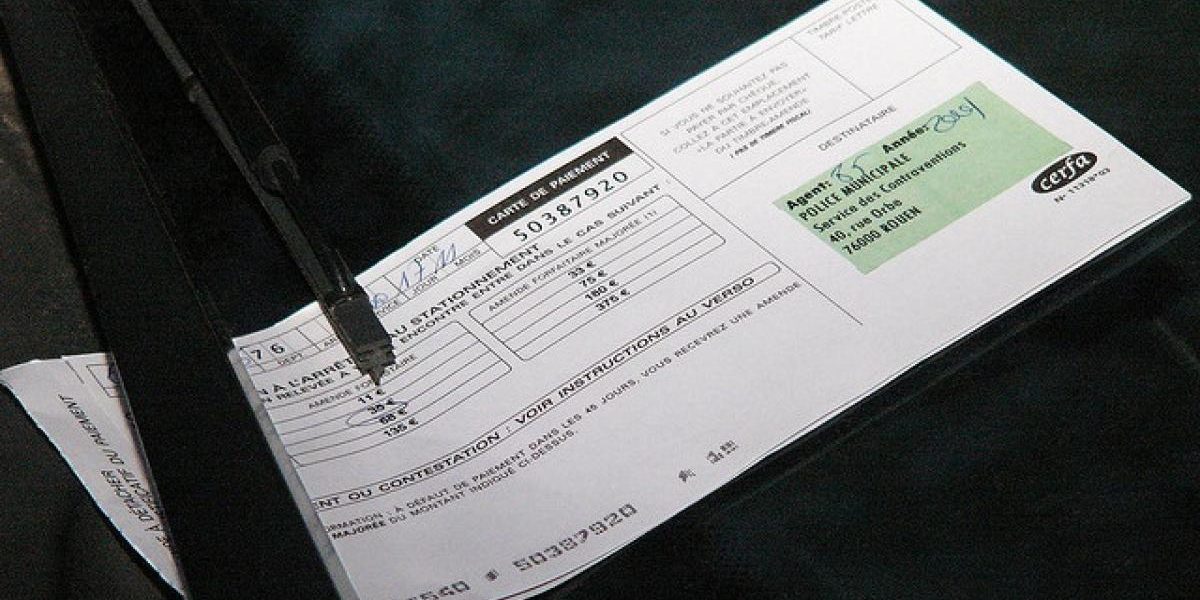 TIMBRE-POSTE
TARIF LETTRE
SI VOUS NE SOUHAITEZ PAS
PAYER PAR CHÈQUE,
COLLEZ A CET EMPLACEMENT
«LA PARTIE A ENVOYER»
DU TIMBRE-AMENDE
( PAS DE TIMBRE FISCAL)
DESTINATAIRE
Agent: Année:
POLICE MUNICIPALE
Service des Contraventions
40, rue Orbe
76000 ROUEN
cerfa
CARTE DE PAIEMENT
50387920
DATE
17 11
JOUR MOIS
76
DEPT
AU STATIONNEMENT
ENCONTRE ENTRE DANS LE CAS SUIVANT
N À L'ARRÊT
RELEVÉE À
AMENDE FORFAITAIRE
11 €
35 €
68 €
135 €
AMENDE FORFAITAIRE MAJORÉE (1)
33 €
75 €
180 €
375 €
ENT OU CONTESTATION : VOIR INSTRUCTIONS AU VERSO
FORMATION : A DÉFAUT DE PAIEMENT DANS LES 45 JOURS, VOUS RECEVREZ UNE AMENDE
MAJORÉE DU MONTANT INDIQUÉ CI-DESSUS.
50387920
A DÉTACHER
DU PAIEMENT